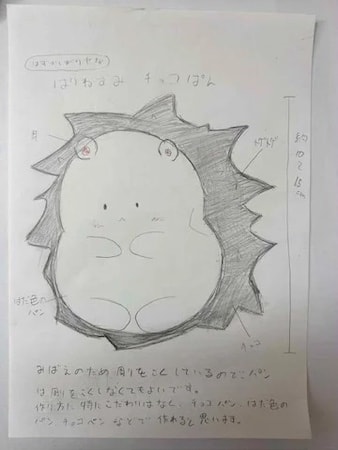 はずかしがりやな
はりねずみ チョコぱん
耳
トゲトゲ
約10〜15cm
はだ色の
パン
チョコ
みばえのため 周りをこくしているので、パン
は周りをこくしなくてもよいです。
作り方に特にこだわりはなく、チョコパン、はだ色の
パン チョコペンなどで 作れると思います。